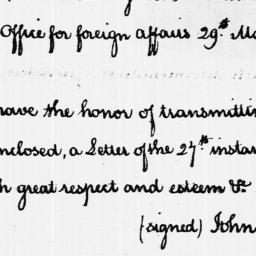 Office for foreign affairs 29.th Ma
have the honor of transmittin
nclosed, a Letter of the 27th instan
h great respect and esteem &c.
(signed) John